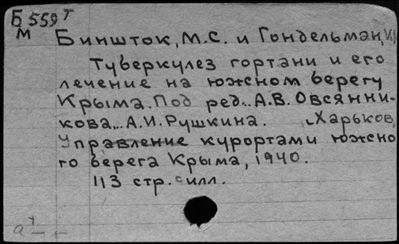 Б 559 Т
М
Биншток, М.С. и Гондельман,
Туберкулез гортани и его
лечение на южном берегу
Крыма. Под ред... А.В. Овсянни-
кова... А.И. Рушкина. Харьков,
Управление курортами южно-
го берега Крыма, 1940.
113 стр. с илл.